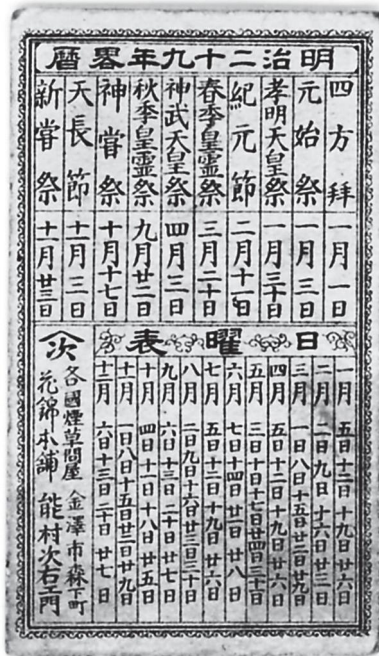 明治二十九年畧暦
四方拜 一月一日
元始祭 一月三日
孝明天皇祭 一月三十日
紀元節 二月十一日
春季皇霊祭 三月二十日
神武天皇祭 四月三日
秋季皇霊祭 九月廿二日
神嘗祭 十月十七日
天長節 十一月三日
新嘗祭 十一月廿三日
日曜表
一月 五日十二日十九日廿六日
二月 二日九日十六日廿三日
三月 一日八日十五日廿二日廿九日
四月 五日十二日十九日廿六日
五月 三日十日十七日廿四日三十一日
六月 七日十四日廿一日廿八日
七月 五日十二日十九日廿六日
八月 二日九日十六日廿三日三十日
九月 六日十三日二十日廿七日
十月 四日十一日十八日廿五日
十一月 一日八日十五日廿二日廿九日
十二月 六日十三日二十日廿七日
次
各國煙草問屋 金澤市森下町
花錦本舗 能村次右エ門